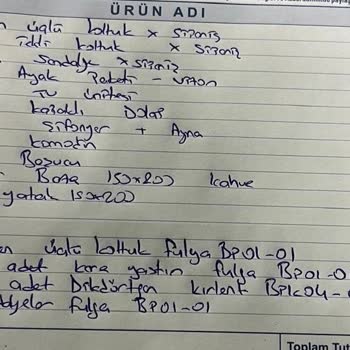 ÜRÜN ADI
üçlü koltuk x sipariş
koltuk x sipariş
Sandalye x sipariş
Ayak Paketi -
TV ünitesi
Kapaklı Dolap
Şifonyer + Ayna
Komodin
Baza 150x200 kahve
yatak 150x200
üçlü koltuk fulya BP01-01
adet kare yastık fulya BP01-0
adet Dikdörtgen kırlent
fulya BP01-01
Toplam Tut